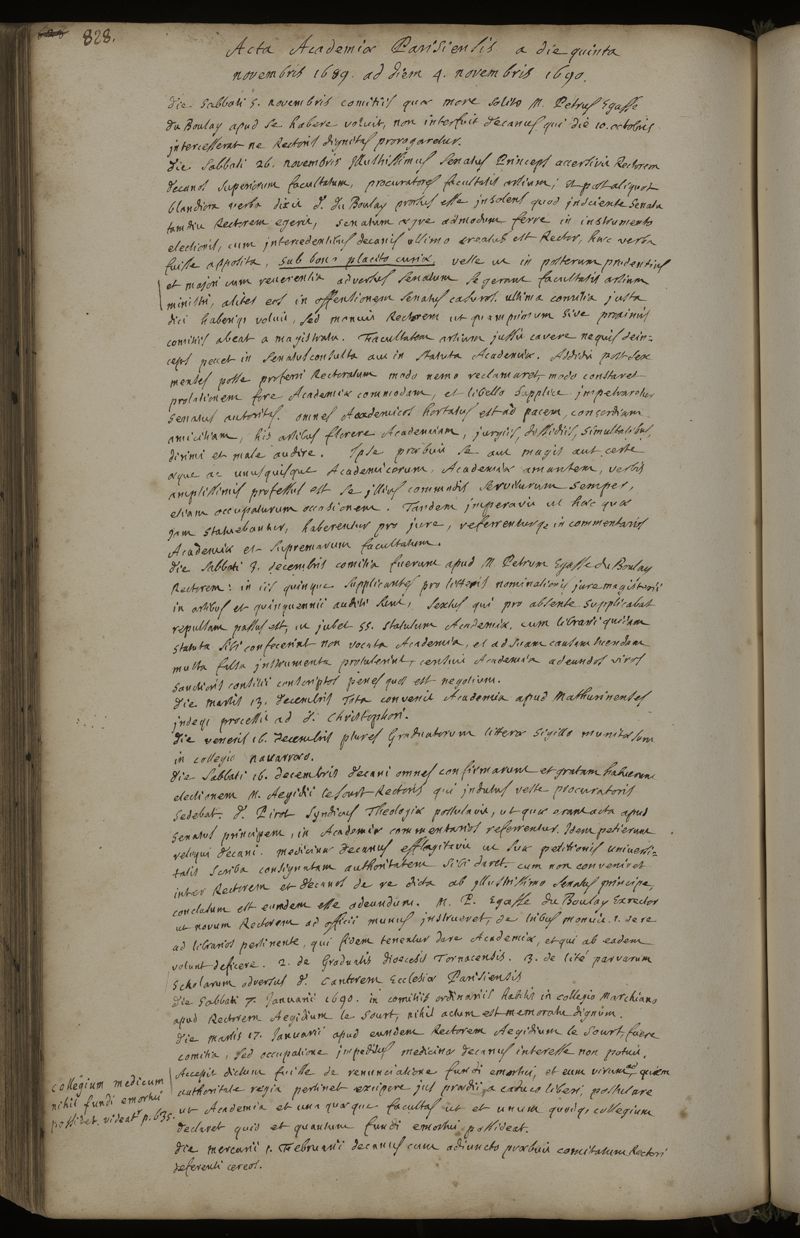 828.
Acta Academiæ Parisiensis a die quinta
novembris 1689. ad diem 4. novembris 1690.
die Sabbati 5. novembris comitiis quæ more solito M. Petrus Egasse
du Boulay apud se habere voluit, non interfuit decanus qui die 10. octobris
intercesserat ne Rectoris dignitas prorogaretur.
die Sabbati 26. novembris illustissimus Senatus Princeps accersivit Rectorem
decanos superiorum facultatum, procuratores facultatis artium; et post aliquot
blandiora verba dixit d. du Boulay prorsus esse insolens quod insciente Senatu
tamdiu Rectorem egerit, Senatum ægre admodum ferre in instrumento
electionis, cum intercedentibus decanis ultimo creatus est Rector, hæc verba
fuisse apposita, sub bono placito curiæ, velle ut in posterum prudentius
et majori cum reverentia adversus Senatum se gerant facultatis artium
ministri, alites eos in offensionem Senatus casuros. ultima comitia justa
dici haberiq; voluit, sed monuit Rectorem ut quamprimum sive proximis
comitiis abeat a magistratu. Facultatem artium jussit cavere nequis dein=
ceps peccet in Senatusconsulta aut in statuta Academiæ. Addidit post sex
menses posse proferri Rectoratum modo nemo reclamaret, modo constaret
prolationem fore Academiæ commodam, et libello supplice impetraretur
Senatus autoritas. omnes Academicos hortatus est ad pacem, concordiam
amicitiam, his artibus florere Academiam, jurgiis, dissidiis, simultatibus,
dirimi et male audire. Ipse probuit se aut magis aut certe
æque ac unusquisque Academicorum, Academiæ amantem, verbis
amplissimis professus est se illius commodis serviturum semper,
etiam occupaturum occasionem. Tandem imperavit ut hæc quæ
jam statuebantur, haberentur pro jure, referrenturq; in commentarios
Academiæ et supremarum facultatum.
die Sabbati 3. decembris comitia fuerunt apud M. Petrum Egasse du Boulay
Rectorem: in iis quinque supplicantes pro litteris nominationis jure magisterii
in artibus et quinquennii auditi sunt, sextus qui pro absente supplicabat
repulsam passus est, ut jubet 55. statutum Academiæ. cum librarii quædam
statuta sibi confecerint non vocata Academia, et ad suam causam tuendam
multa falsa instrumenta protulerint, censuit Academia adeundos viros
sanctioris consilii conscriptos penes quos est negotium.
die martis 13. decembris tota convenit Academia apud Mathurinenses
indeq; processit ad S. Christophori.
die veneris 16. decembris plures Graduatorum litteræ sigillo munitæ sunt
in collegio navarræo.
die Sabbati 16. decembris decani omnes confirmarunt et gratam habuerunt
electionem M. Aegidii le Sourt Rectoris qui indutus veste procuratoris
sedebat. d. Pirot Syndicus Theologiæ postulavit, ut quæ erant acta apud
Senatus principem, in Academiæ commentarios referrentur. Idem petierunt
reliqui decani. medicinæ decanus efflagitavit ut suæ petitionis universi=
tatis scriba consignatam authoritatem sibi daret. cum non conveniret
inter Rectorem et decanos de re dicta ab illustissimo Senatus principe,
conclusum est eumdem esse adeundum. M. P. Egasse du Boulay Exrector
ut novum Rectorem ad officii munus instrueret, de tribus monuit. 1. de re
ad librarios pertinente, qui fidem tenentur dare Academiæ, et qui ab eadem
volunt deficere. 2. de Gradualis dioecesis Tornacensis. 3. de lite parvarum
Scholarum adversus d. Cantorem Ecclesiæ Parisiensis
die Sabbati 7. Januarii 1690. in comitiis ordinariis habitis in collegio Marchiano
apud Rectorem Aegidium le Sourt, nihil actum est memoratu dignum.
die martis 17. Januarii apud eundem Rectorem Aegidium le Sourt, fuere
comitia, sed occupatione impeditus medicinæ decanus interesse non potuit.
Accepit dictum fuisse de renunciatione fundi emortui, et eum virum, ad quem
authoritate regia pertinet excipere jus prædii a caduco liberi, postulare
ut Academia et una quæque facultas ut et unum quodq; collegium
declaret quid et quantum fundi emortui possideat.
die mercurii 1. Februarii decanus cum adjuncto præbuit comitatum Rectori
deferenti cereos.
collegium medicum
nihil fundi emortui
possidet. videat. p. 635.